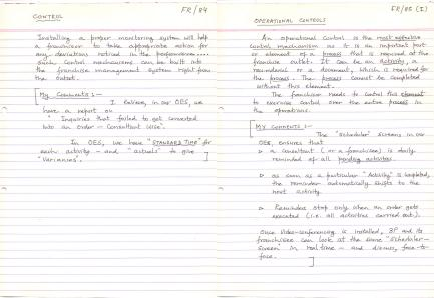 FR/84
CONTROL
Installing a proper monitoring system will help
a franchisor to take appropriate action for
any deviations noticed in the performance.
Such control mechanisms can be built into
the franchise management system right from
the outset.
My Comments :-
I believe, in our OES, we
have a report on
" Inquiries that failed to get converted
into an order - Consultant wise".
In OES, we have "STANDARD TIME" for
each activity - and "actuals" to give
"Variances".
FR/85 (I)
OPERATIONAL CONTROLS
An operational control is the most effective
control mechanism as it is an important part
or element of a process that is required at the
franchise outlet. It can be an activity, a
raw material or a document, which is required for
the process. The process cannot be completed
without this element.
The franchisor needs to control this element
to exercise control over the entire process in
the operations.
MY COMMENTS :-
The "Scheduler" screens in our
OES, ensures that
a consultant (or a franchisee) is daily
reminded of all pending activities
as soon as a particular "Activity" is completed,
the reminder automatically shifts to the
next activity.
Reminders stop only when an order gets
executed (i.e. all activities carried out).
Once video-conferencing is installed, BP and its
franchisee can look at the same "Scheduler-
Screen" in real time - and discuss, face-to-
face.